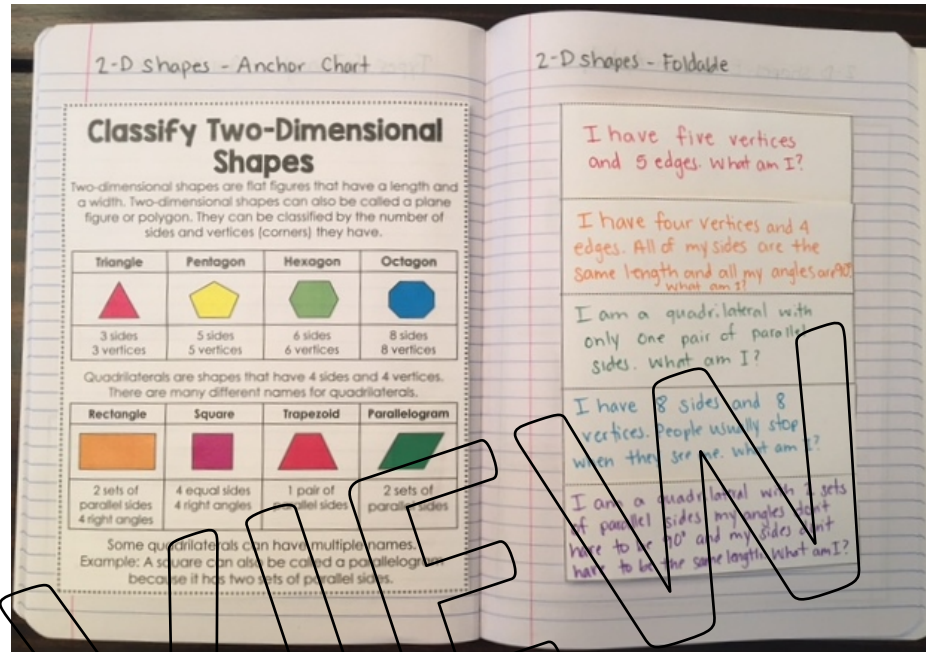 2-D shapes - Anchor Chart
Classify Two-Dimensional
Shapes
Two-dimensional shapes are flat figures that have a length and
a width. Two-dimensional shapes can also be called a plane
figure or polygon. They can be classified by the number of
sides and vertices (corners) they have.
Triangle Pentagon Hexagon Octagon
3 sides 5 sides 6 sides 8 sides
3 vertices 5 vertices 6 vertices 8 vertices
Quadrilaterals are shapes that have 4 sides and 4 vertices.
There are many different names for quadrilaterals.
Rectangle Square Trapezoid Parallelogram
2 sets of 4 equal sides 1 pair of 2 sets of
parallel sides 4 right angles parallel sides parallel sides
4 right angles
Some quadrilaterals can have multiple names.
Example: A square can also be called a parallelogram
because it has two sets of parallel sides.
2-D shapes - Foldable
I have five vertices
and 5 edges. What am I?
I have four vertices and 4
edges. All of my sides are the
same length and all my angles are 90°.
What am I?
I am a quadrilateral with
only one pair of parallel
sides. What am I?
I have 8 sides and 8
vertices. People usually stop
when they see me. What am I?
I am a quadrilateral with 2 sets
of parallel sides my angles don't
have to be 90° and my sides don't
have to be the same length. What am I?
VIEW